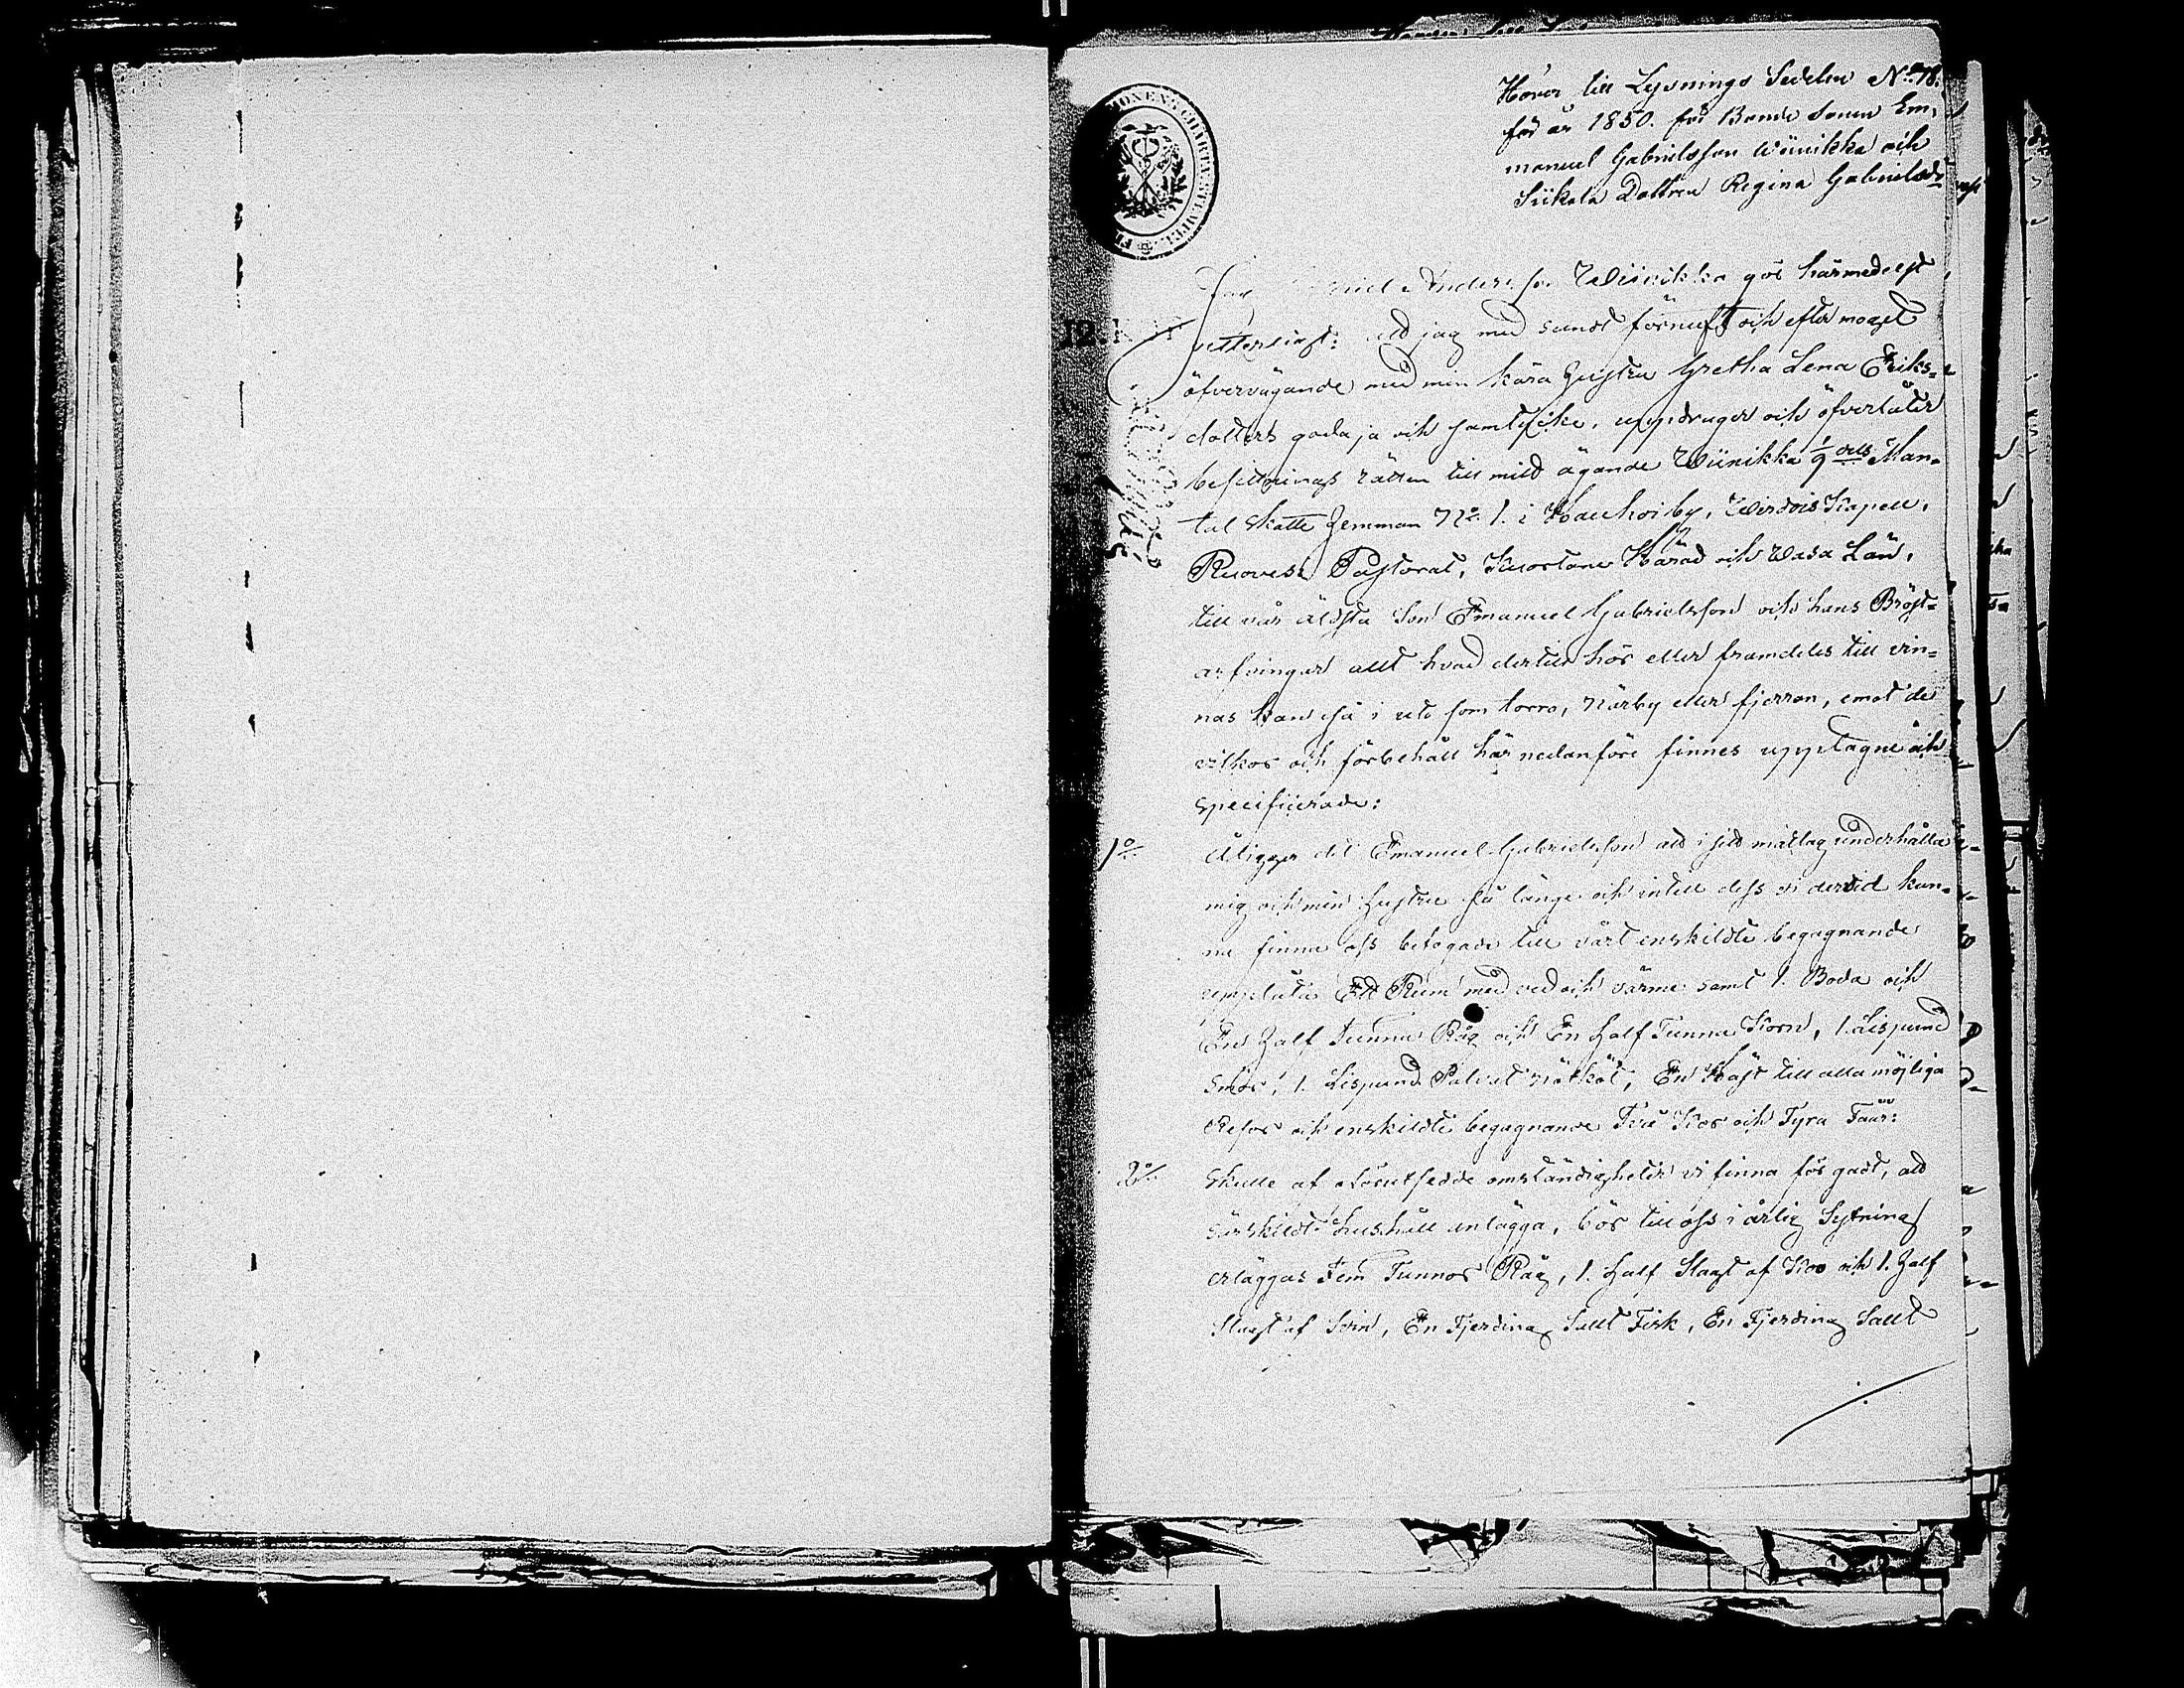 Hörer till Lysnings Sedelen No 78.
för år 1850. för Bonde Sonen Em,
manuel Gabrielsson Wiinikka och
Siikala Dottren Regina Gabrielsdr
Jag Andersson Wiinikka gör härmedelst
vetterligt: att jag med sundt förnuft och efter moget
öfvervägande med min kära Hustru Gretha Lena Eriks-
dotters goda ja och samtycke, uppdrager och öfverlåter
besittnings rätten till mitt ägande Wiinikka 1/9 dels Man-
tal Skatte Hemman No 1. i Kauhoi by, Wirdois Kapell,
Ruovesi Pastorat, Kuortane Härad och Wasa Län,
till vår äldsta Son Emanuel Gabrielsson och hans Bröst-
arfvingar allt hvad dertill hör eller framdeles till vin-
nas kan så i våto som torro, närby eller fjerran, emot de
vilkor och förbehåll här nedanföre finnes upptagne och
specifiierade:
1o Åligger det Emanuel Gabrielsson att i sitt matlag underhålla
mig och min Hustru så länge och intill dess vi dervid kun-
na finna oss belogade till vårt enskildte begagnande
upplåta Ett Rum med ved och värme samt 1. Boda och
En Half Tunna Råg och En half Tunna Korn, 1. Lispund
Smör, 1. Lispund Palvat nötköt, En Häst till alla möjliga
Resor och enskildte begagnande Två Kor och Fyra Faar:
2o Skulle af oförutsedde omständigheter vi finna för godt, att
särskildt hushåll anlägga, bör till oss i årlig Sytning
erläggas Fem Tunnor Råg, 1. half Slagt af Koo och 1. Half
Slagt af Svin, En Fjerding Salt Fisk, En Fjerding Salt